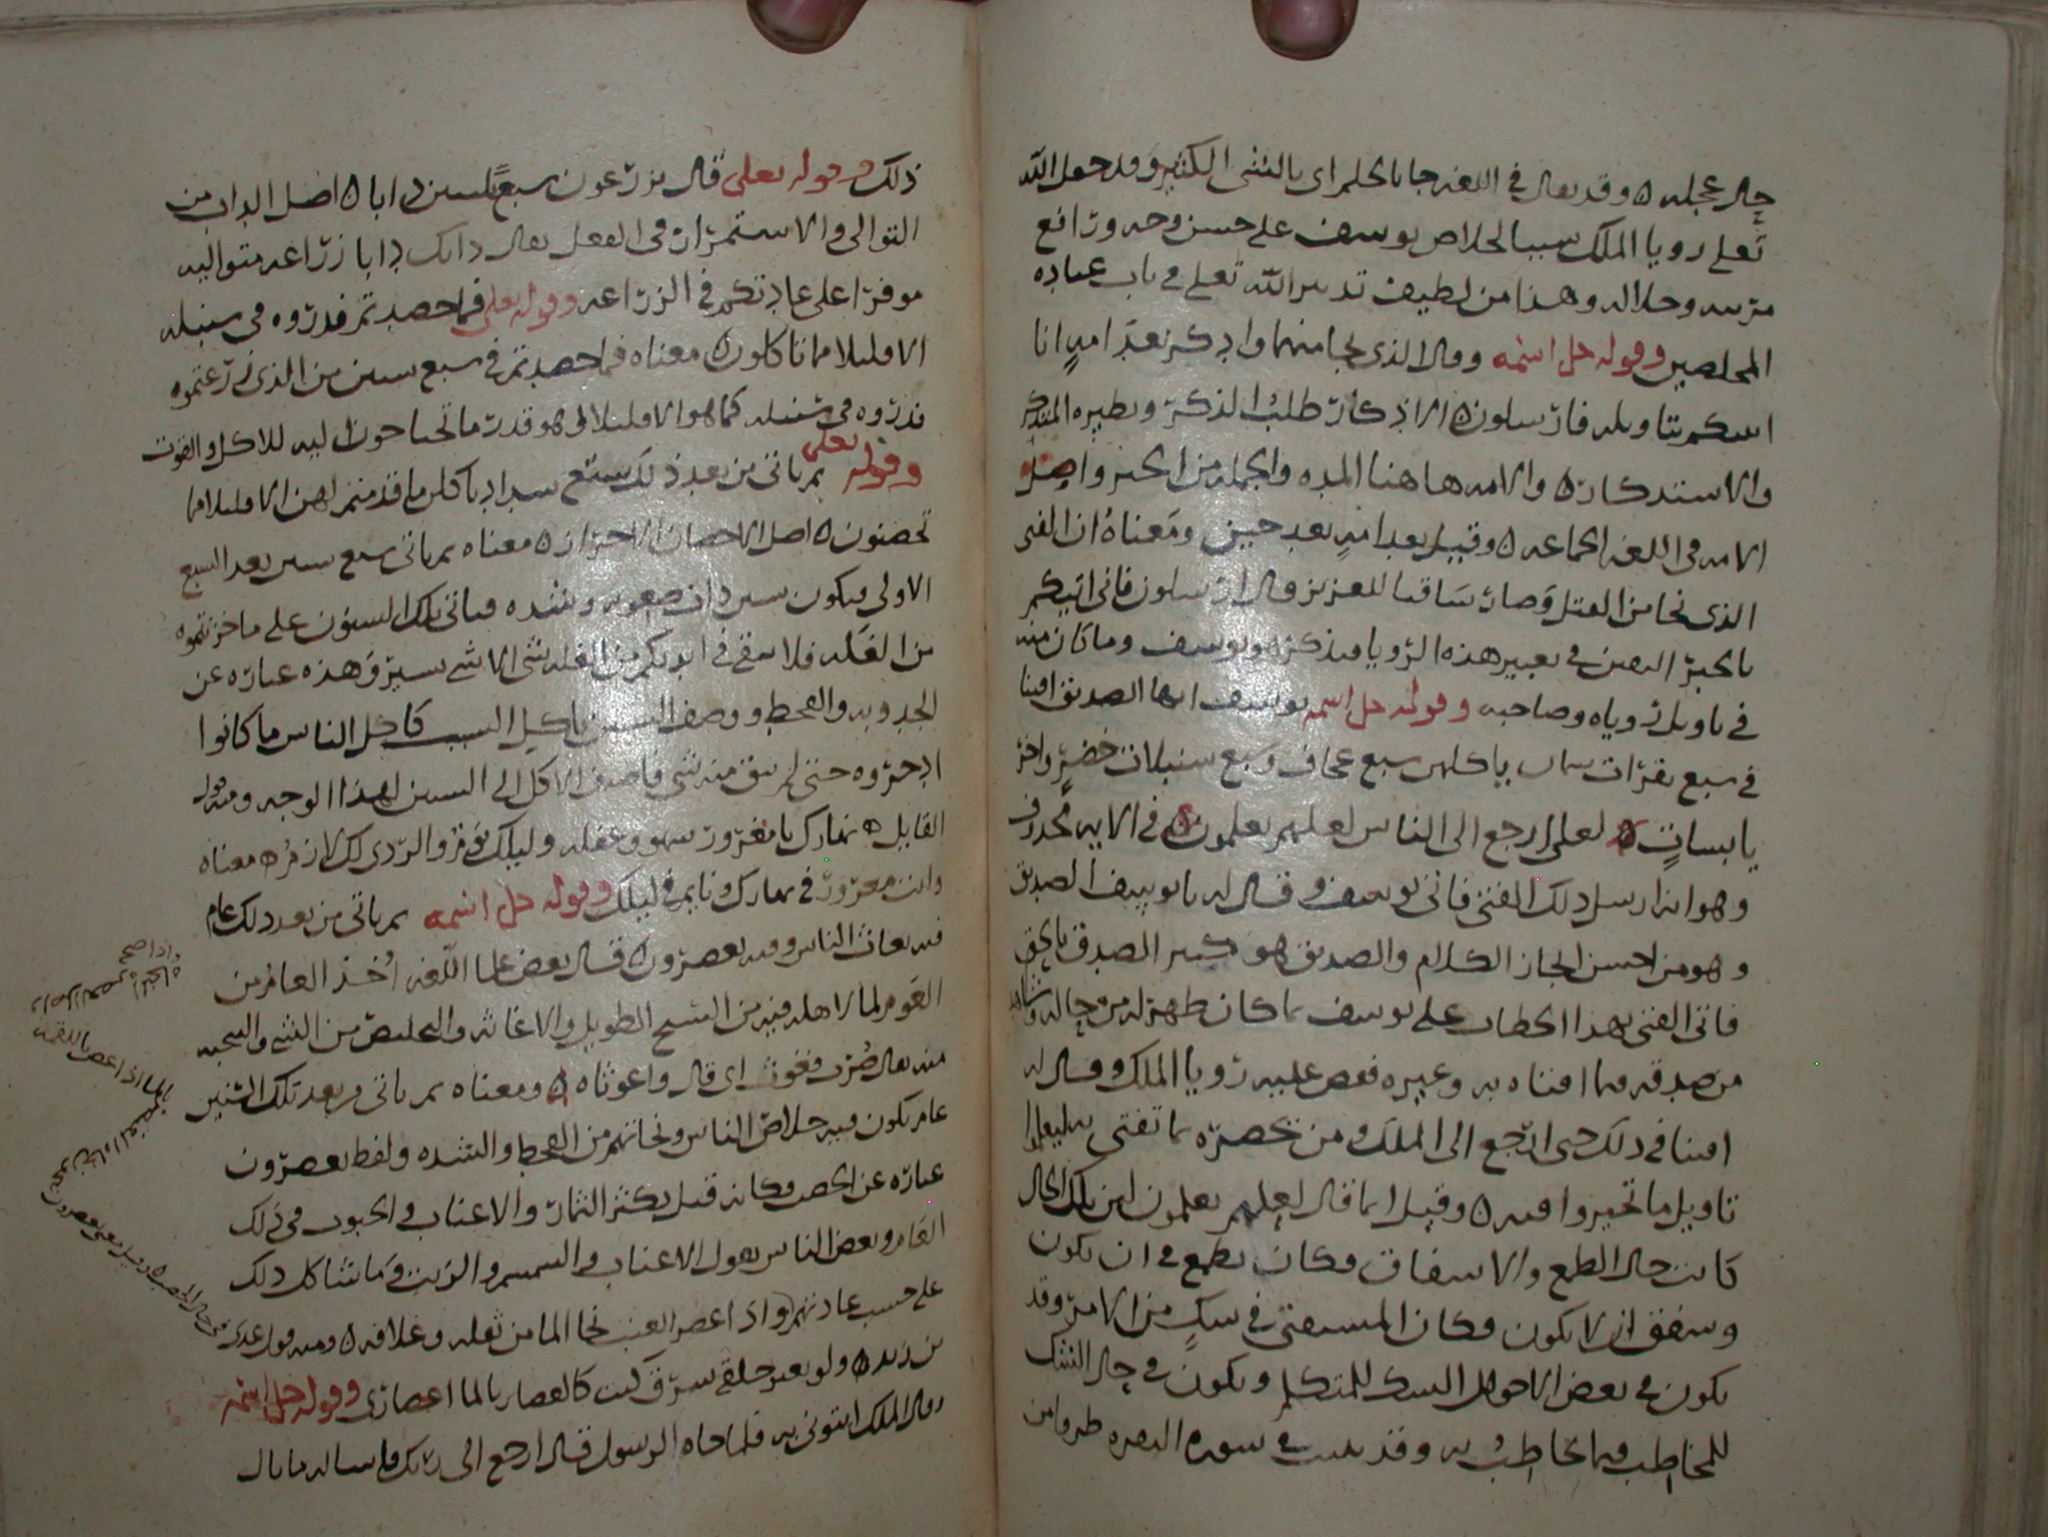 حال عجله ٥ وقد يقال في اللغه جا بالحلم اي بالشي الكثير وقد جعل الله
تعلى رويا الملك سببا لخلاص يوسف على حسن وجه ورائع
مرتبه وجلاله وهذا من لطيف تدبير الله تعلى في باب عباده
المخلصين وقوله جل اسمه وقال الذي نجا منهما وادكر بعد امه انا
انبيكم بتاويله فارسلون ٥ الاذكار طلب الذكر ونظيره التذكر
والاستذكار ٥ والامه هاهنا المده والجمله من الحين واصل
الامه في اللغه الجماعه ٥ وقيل بعد امه بعد حين ومعناه ان الفتى
الذي نجا من القتل وصار ساقيا للعزيز قال ارسلون فاني اتيكم
بالخبر اليقين في تعبير هذه الرويا فيذكره يوسف وما كان منه
في تاويل روياه وصاحبه وقوله جل اسمه يوسف ايها الصديق افتنا
في سبع بقرات سمان ياكلهن سبع عجاف وسبع سنبلات خضر واخر
يابسات ٥ لعلي ارجع الى الناس لعلهم يعلمون ٥ في الايه محذوف
وهو انه ارسل ذلك الفتى فاتى يوسف وقال له يا يوسف الصديق
وهو من احسن ايجاز الكلام والصديق هو كثير الصدق بالحق
فاتى الفتى بهذا الخطاب على يوسف بما كان ظهر له من حاله وشاهد
من صدقه فيما افتاه به وغيره فقص عليه رويا الملك وقال له
افتنا في ذلك حتى ارجع الى الملك ومن بحضره بما تفتي به ليعلموا
تاويل ما تحيروا فيه ٥ وقيل انما قال لعلهم يعلمون لان تلك الحال
كانت حال الطمع والاشفاق فكان يطمع في ان يكون
ويشفق ان لا يكون فكان المستفتي في شك من الامر وقد
يكون في بعض الاحوال الشك للمتكلم ويكون في حال الشك
للمخاطب فيما يخاطب به وقد بينت في سوره البقره طرفا من
ذلك وقوله تعلى قال تزرعون سبع سنين دابا ٥ اصل الداب من
التوالي والاستمرار في الفعل يقال دابك دابا زراعه متواليه
موفرا على عادتكم في الزراعه وقوله تعلى فما حصدتم فذروه في سنبله
الا قليلا مما تاكلون ٥ معناه فما حصدتم في سبع سنين من الذي زرعتموه
فذروه في سنبله كما هو الا قليلا وهو قدر ما تحتاجون اليه للاكل والقوت
وقوله تعلى ثم ياتي من بعد ذلك سبع شداد ياكلن ما قدمتم لهن الا قليلا مما
تحصنون ٥ اصل الاحصان الاحراز ٥ معناه ثم ياتي سبع سنين بعد السبع
الاولى فيكون سنين ذات صعوبه وشده فياتي تلك السنون على ما خزنتموه
من الغله فلا يبقى في ايديكم من الغله شي الا شي يسير وهذه عباره عن
الجدوبه والقحط ووصف السنين باكل السبب كاكل الناس ما كانوا
ادخروه حتى لم يبق منه شي فاضيف الاكل الى السنين لهذا الوجه ومنه قول
القايل ٥ نهارك يا مغرور سهو وغفله وليلك نوم والردى لك لازم ٥ معناه
وانت مغرور في نهارك ونايم في ليلك وقوله جل اسمه ثم ياتي من بعد ذلك عام
فيه يغاث الناس وفيه يعصرون ٥ قال بعض علما اللغه اخذ العام من
العوم لما لاهله فيه من السبح الطويل والاغاثه والتخليص من الشي والنجيه
منه يقال ضرب فغوث اي قال واغوثاه ٥ ومعناه ثم ياتي من بعد تلك السنين
عام يكون فيه خلاص الناس ونجاتهم من القحط والشده ولفظ يعصرون
عباره عن الخصب فكانه قيل يكثر الثمار والاعناب والحبوب في ذلك
العام وبعض الناس يقول الاعناب والسمسم والزيت وما شاكل ذلك
على حسب عادتهم واذا عصر العنب نجا الما من ثفله وغلافه ٥ ومنه قول عدي
بن زيد ٥ ولو بغير حلقي شرق كنت كالغصان بالما اعتصاري وقوله جل اسمه
وقال الملك ايتوني به فلما جاه الرسول قال ارجع الى ربك فاساله ما بال